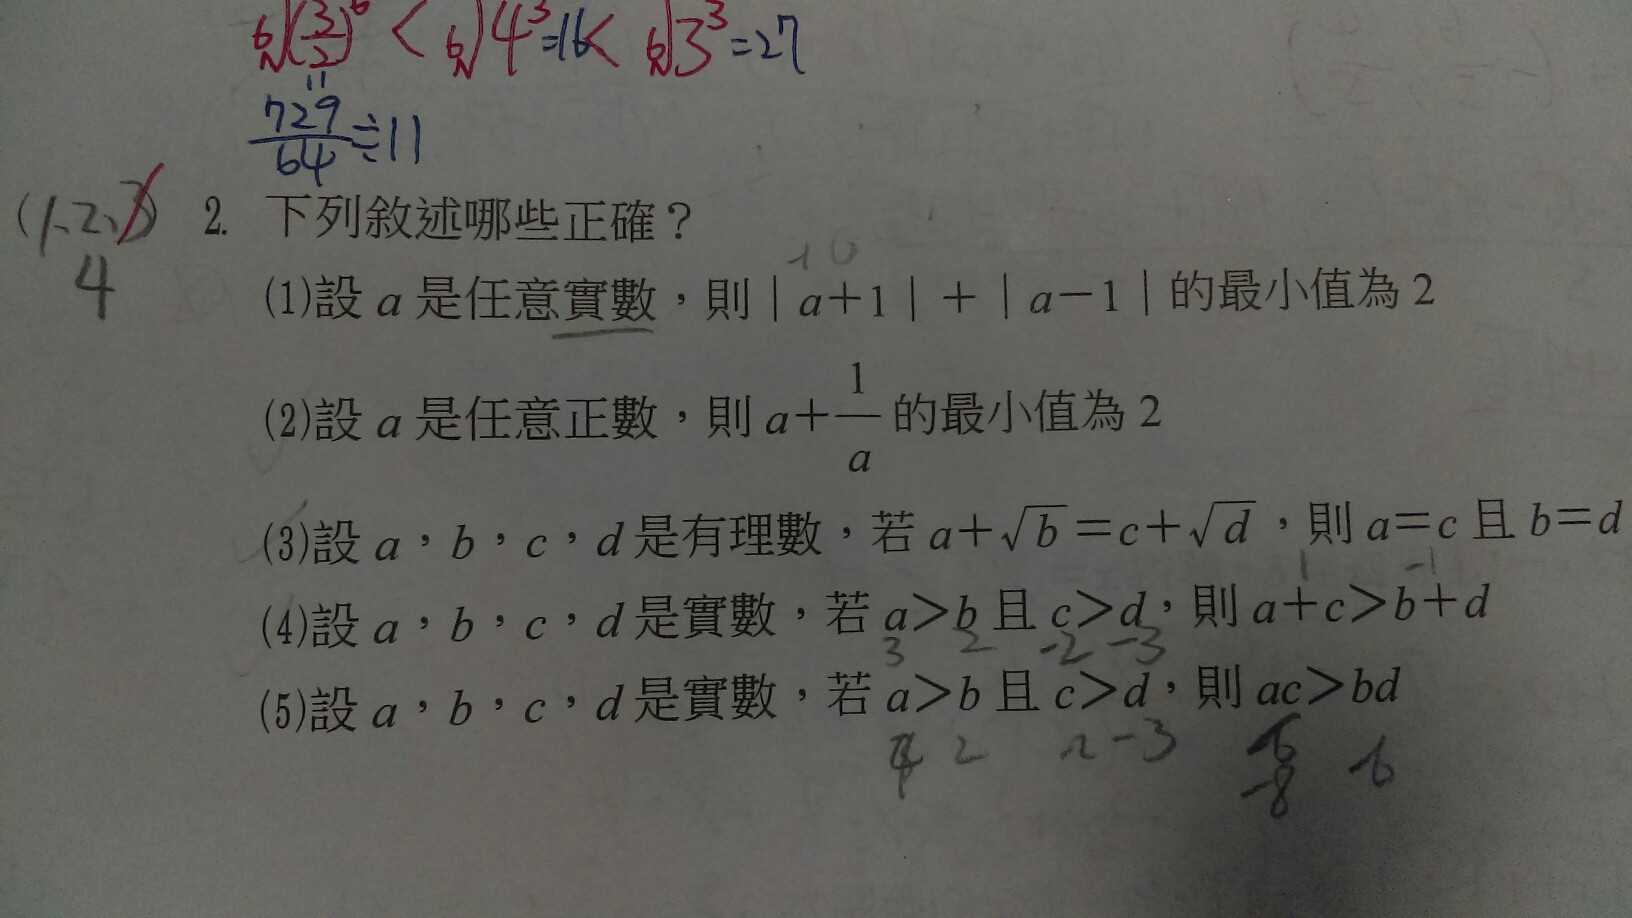 6√(3/2)^6 < 6√4^3=16< 6√3^3=27
729/64≒11
(1,2,3) 2. 下列敘述哪些正確？
4
(1)設 a 是任意實數，則｜a＋1｜＋｜a－1｜的最小值為 2
(2)設 a 是任意正數，則 a＋1/a 的最小值為 2
(3)設 a，b，c，d 是有理數，若 a＋√b＝c＋√d，則 a＝c 且 b＝d
1 -1
(4)設 a，b，c，d 是實數，若 a＞b 且 c＞d，則 a＋c＞b＋d
3 2 -2 -3
(5)設 a，b，c，d 是實數，若 a＞b 且 c＞d，則 ac＞bd
4 2 -2 -3 -6 -6
-8